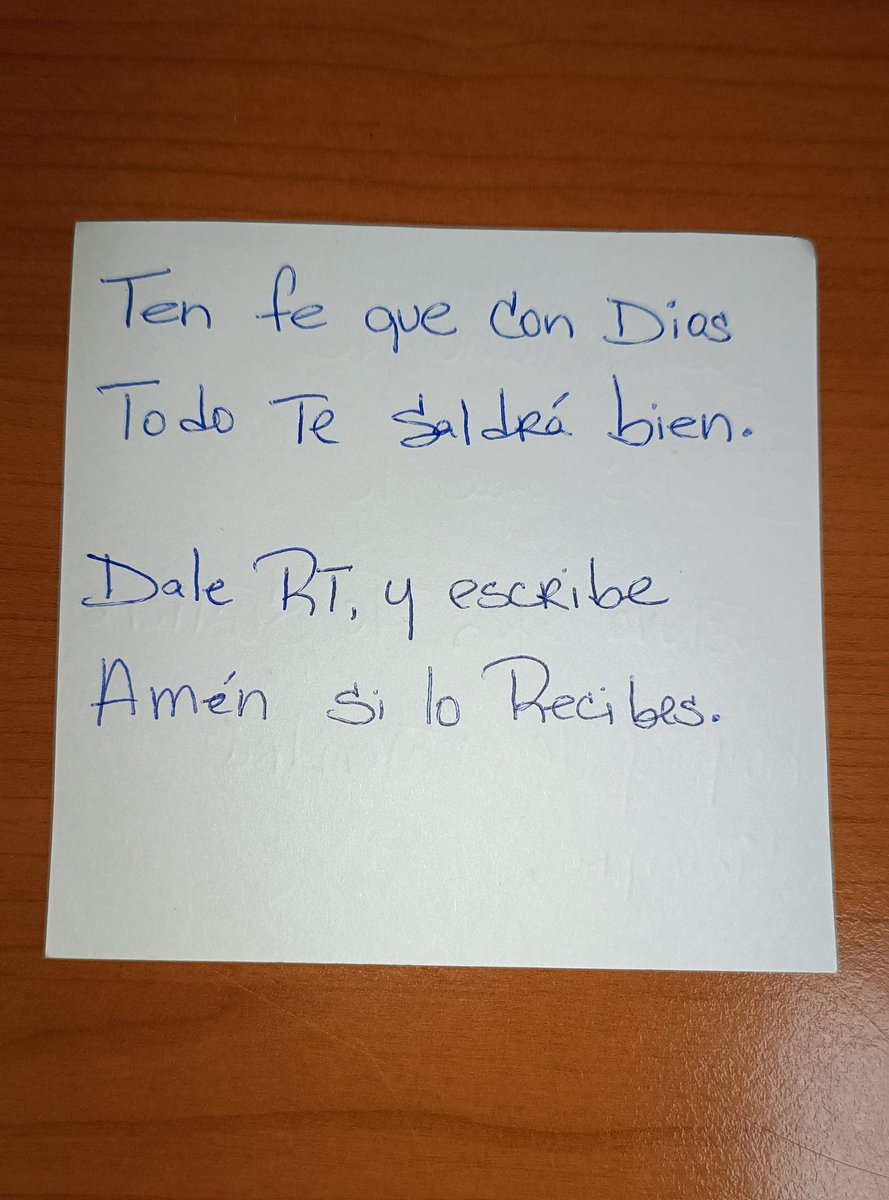 Ten fe que con Dios
Todo Te saldrá bien.
Dale RT, y escribe
Amén si lo Recibes.